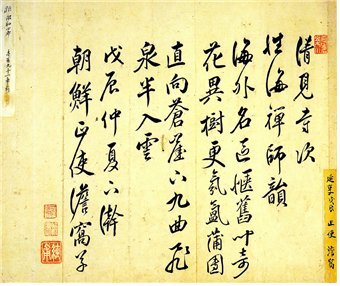 清見寺次
性海禪師韻
海外名區愜舊聞奇
花異樹更氛氳蒲團
直向蒼崖下九曲飛
泉半入雲
戊辰仲夏下澣
朝鮮正使澹窩子
正使 澹窩